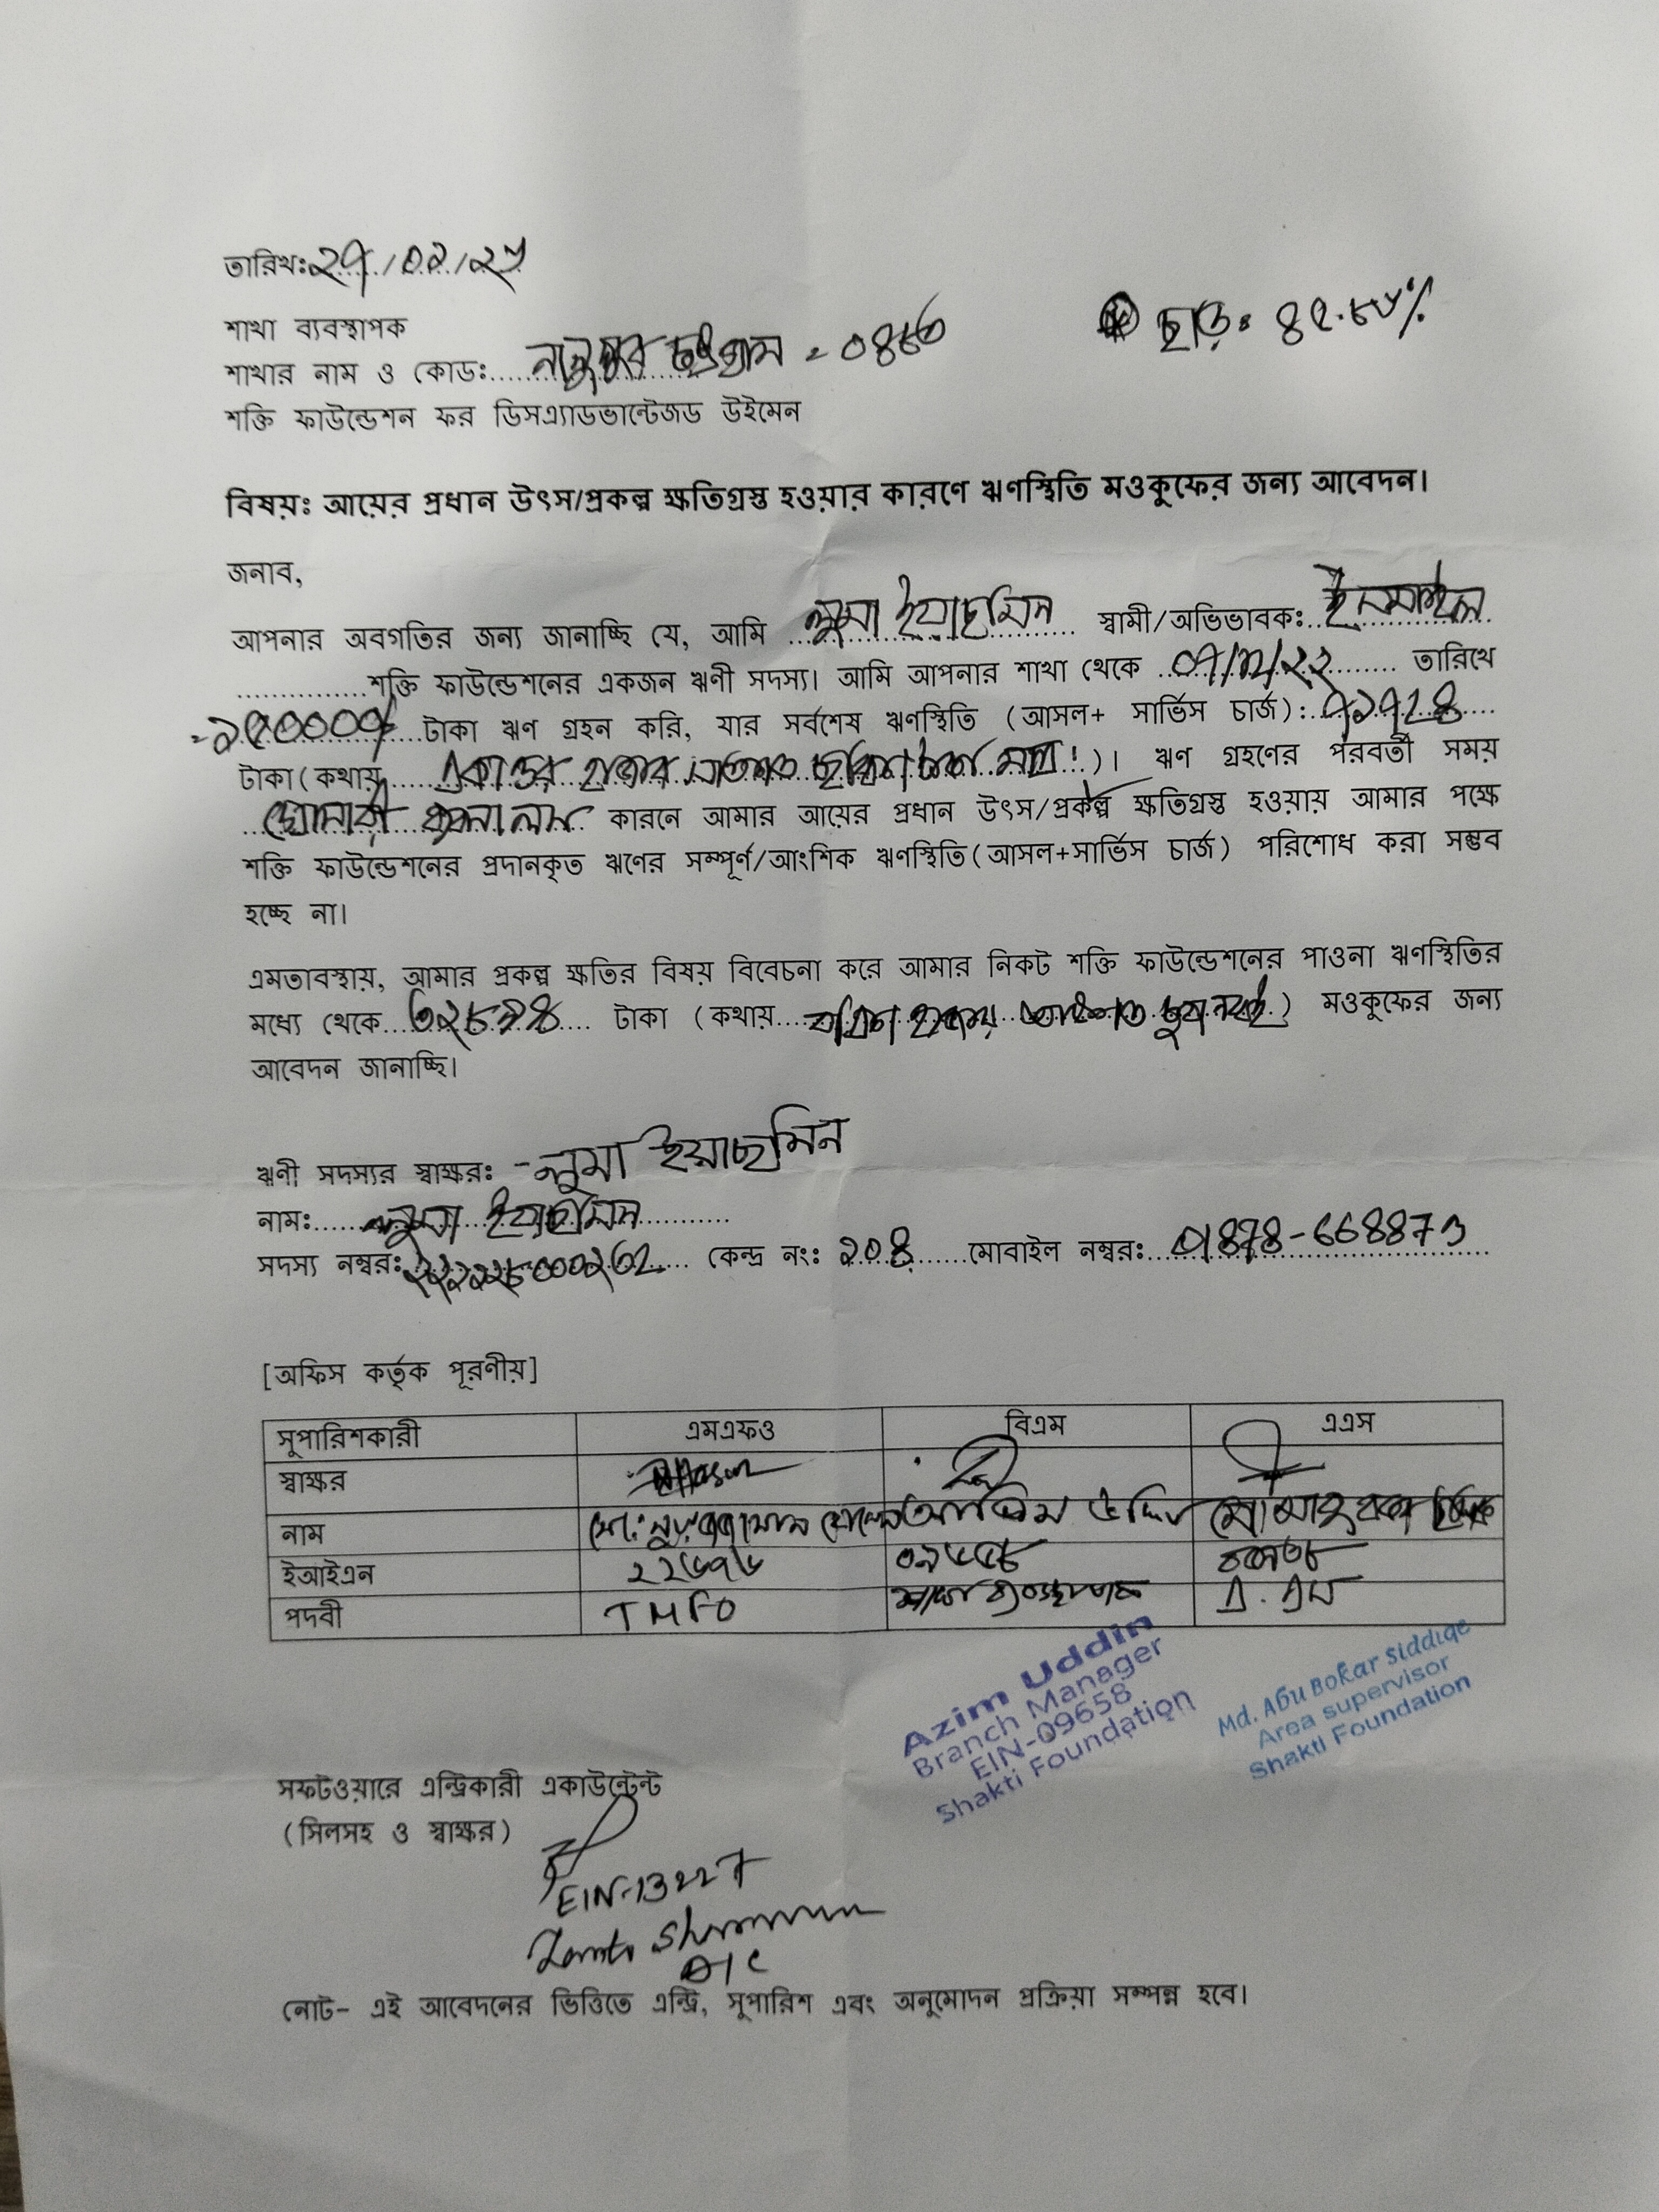 তারিখঃ ২৭/০২/২৫
শাখা ব্যবস্থাপক
ছাড়ঃ ৪৫.৮৮%
শাখার নাম ও কোডঃ নানুপুর চট্টগ্রাম = ০৪৮৬
শক্তি ফাউন্ডেশন ফর ডিসএ্যাডভান্টেজড উইমেন
বিষয়ঃ আয়ের প্রধান উৎস/প্রকল্প ক্ষতিগ্রস্ত হওয়ার কারণে ঋণস্থিতি মওকুফের জন্য আবেদন।
জনাব,
আপনার অবগতির জন্য জানাচ্ছি যে, আমি লুমা ইয়াছমিন স্বামী/অভিভাবকঃ ইসমাইল
শক্তি ফাউন্ডেশনের একজন ঋণী সদস্য। আমি আপনার শাখা থেকে তারিখে
টাকা ঋণ গ্রহন করি, যার সর্বশেষ ঋণস্থিতি (আসল+ সার্ভিস চার্জ):
টাকা(কথায় একাত্তর হাজার সাতশত ছাব্বিশ টাকা মাত্র।)। ঋণ গ্রহণের পরবর্তী সময়
কারনে আমার আয়ের প্রধান উৎস/প্রকল্প ক্ষতিগ্রস্ত হওয়ায় আমার পক্ষে
শক্তি ফাউন্ডেশনের প্রদানকৃত ঋণের সম্পূর্ণ/আংশিক ঋণস্থিতি(আসল+সার্ভিস চার্জ) পরিশোধ করা সম্ভব
হচ্ছে না।
এমতাবস্থায়, আমার প্রকল্প ক্ষতির বিষয় বিবেচনা করে আমার নিকট শক্তি ফাউন্ডেশনের পাওনা ঋণস্থিতির
মধ্যে থেকে টাকা (কথায় বত্রিশ হাজার আটশত) মওকুফের জন্য
আবেদন জানাচ্ছি।
ঋণী সদস্যর স্বাক্ষরঃ - লুমা ইয়াছমিন
নামঃ লুমা ইয়াছমিন
সদস্য নম্বরঃ কেন্দ্র নংঃ ২০৪ মোবাইল নম্বরঃ 01878-668873
[অফিস কর্তৃক পূরণীয়]
সুপারিশকারী এমএফও বিএম এএস
স্বাক্ষর
নাম আজিম উদ্দিন
ইআইএন ২২৬৭৬ ০৯৬৫৮
পদবী TMFO শাখা ব্যবস্থাপক এ. এস
Azim Uddin
Branch Manager
EIN-09658
Shakti Foundation
Md. Abu Bokar Siddiqe
Area supervisor
Shakti Foundation
সফটওয়ারে এন্ট্রিকারী একাউন্টেন্ট
(সিলসহ ও স্বাক্ষর)
EIN-13227
নোট- এই আবেদনের ভিত্তিতে এন্ট্রি, সুপারিশ এবং অনুমোদন প্রক্রিয়া সম্পন্ন হবে।